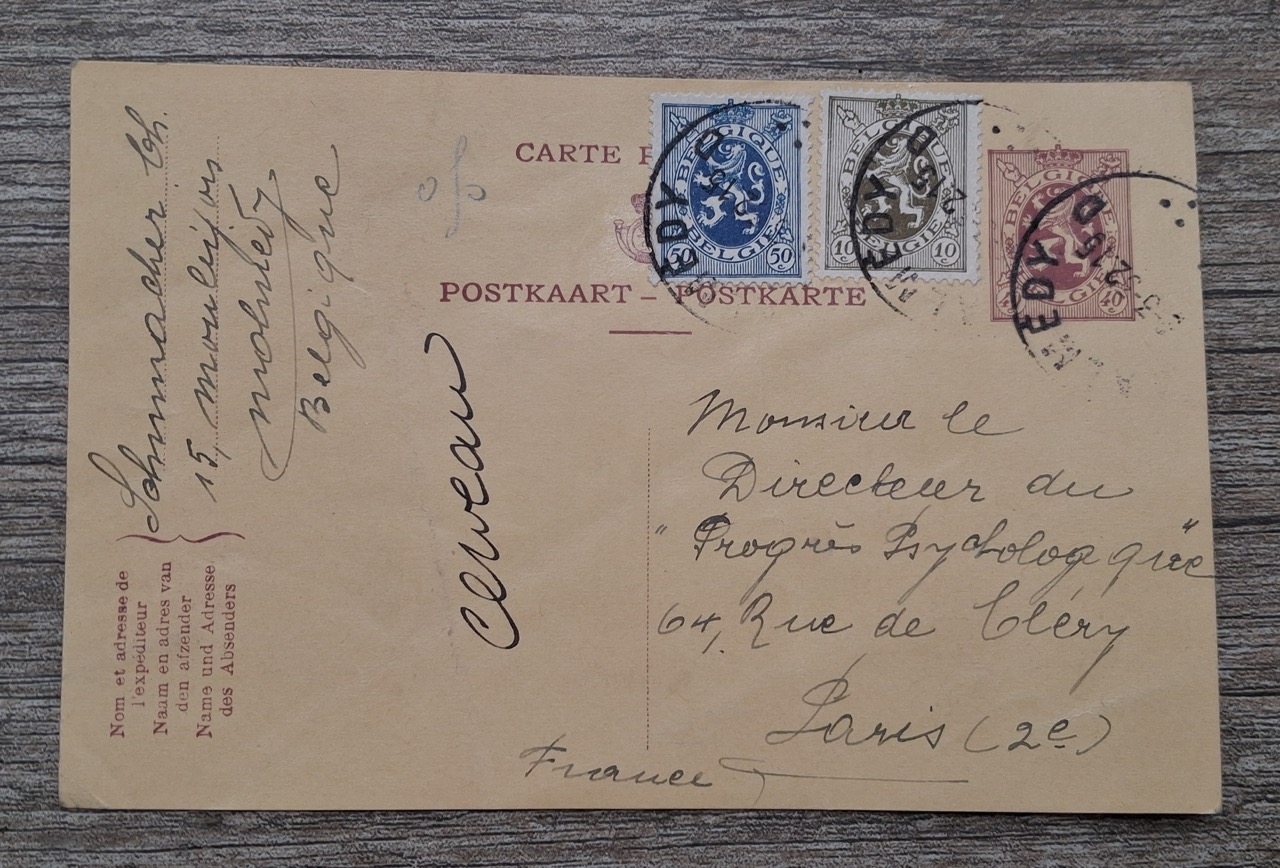 CARTE P
POSTKAART – POSTKARTE
BELGIQUE
BELGIË
50 50
BELGIQUE
BELGIË
10 10
BELGIQUE
BELGIË
40
EDY
D
15
EDY
D
15
EDY
D
15
Nom et adresse de
l'expéditeur
Naam en adres van
den afzender
Name und Adresse
des Absenders
Schumacher Ch.
15,
Belgique
Monsieur le
Directeur du
"Progrès Psychologique"
64, Rue de Cléry
Paris (2e)
France